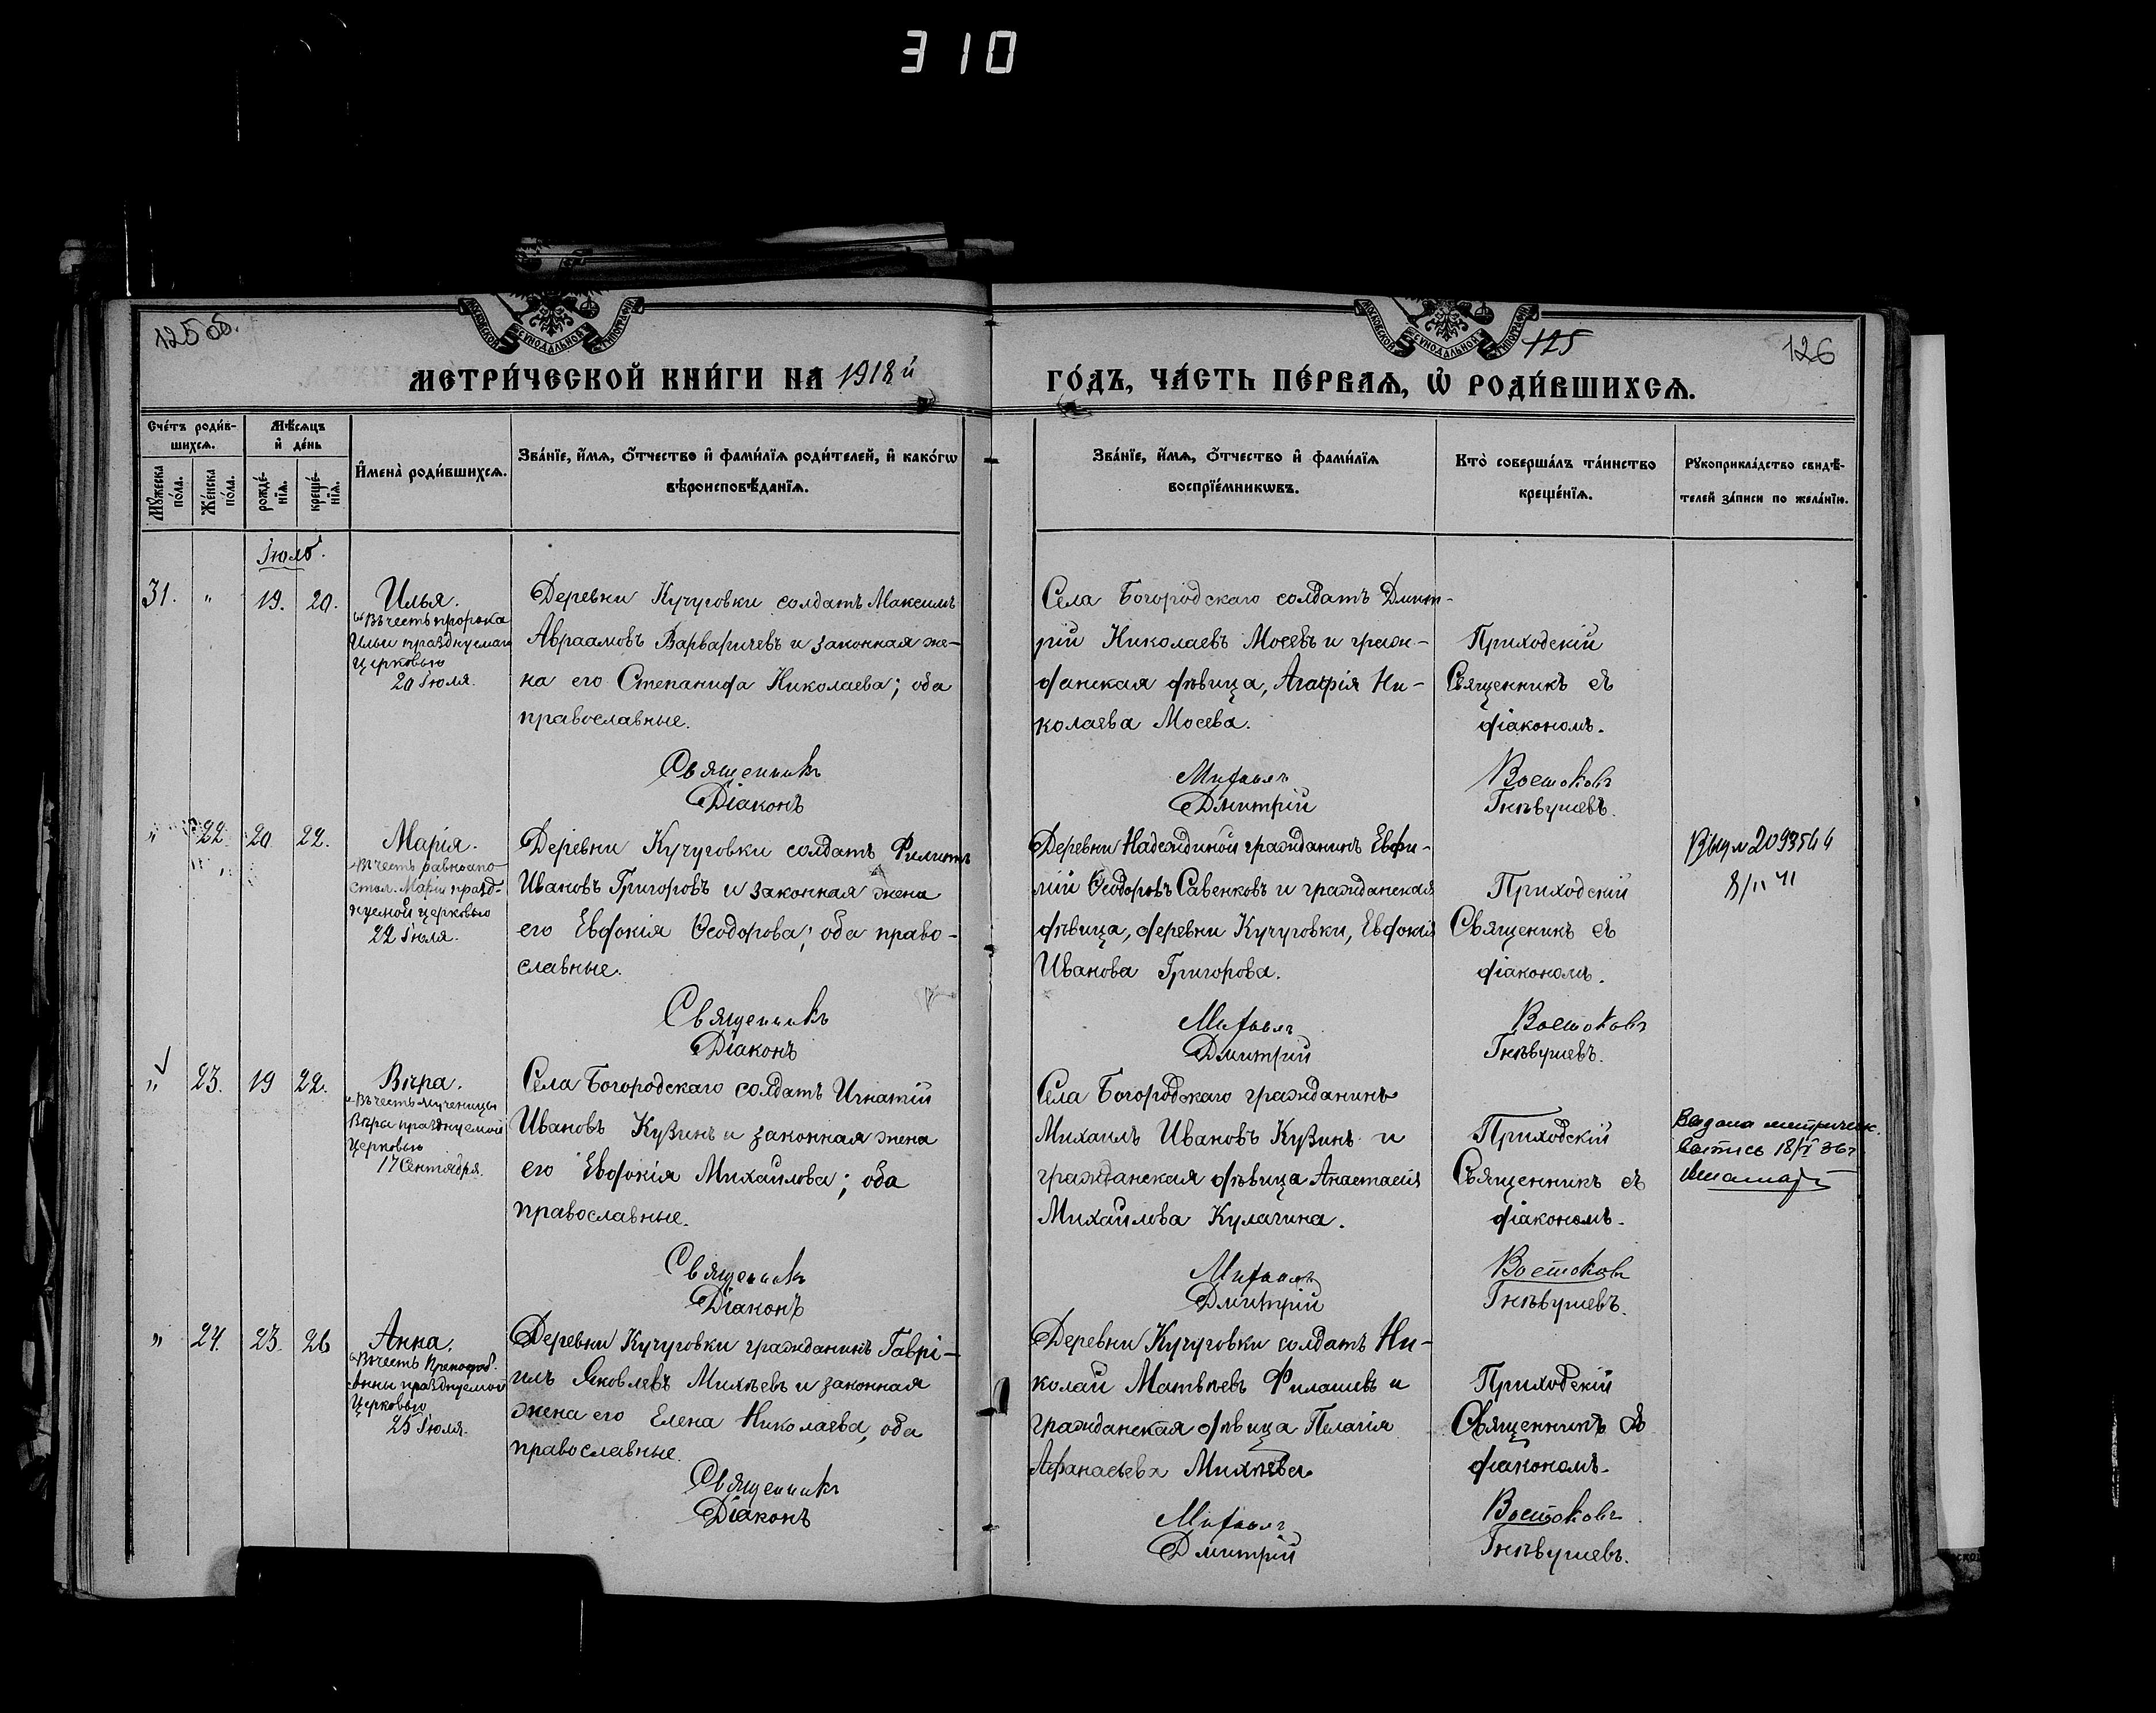 310
125 об.
125
126
МОСКОВСКОЙ СѴНОДАЛЬНОЙ ТИПОГРАФІИ
МОСКОВСКОЙ СѴНОДАЛЬНОЙ ТИПОГРАФІИ
МЕТРИ́ЧЕСКОЙ КНИ́ГИ НА 1918й
ГО́ДЪ, ЧА́СТЬ ПЕ́РВАѦ, Ѡ҆ РОДИ́ВШИХСѦ.
Сче́тъ роди́в-
шихсѧ.
Мѣ́сѧцъ
и҆ де́нь
Мꙋ́жеска
по́ла.
Же́нска
по́ла.
рожде́-
нїѧ.
креще́-
нїѧ.
И҆мена̀ роди́вшихсѧ.
Зва́нїе, и҆́мѧ, ѻ҆́тчество и҆ фами́лїѧ роди́телей, и҆ како́гѡ
вѣроисповѣ́данїѧ.
Зва́нїе, и҆́мѧ, ѻ҆́тчество и҆ фами́лїѧ
воспрїе́мникѡвъ.
Кто̀ соверша́лъ та́инство
креще́нїѧ.
Рꙋкоприкла́дство свидѣ́-
телей за́писи по жела́нїю.
Іюль.
31. " 19. 20.
Илья.
Въ честь пророка
Ильи празднуемаго
Церковью
20 Іюля.
Деревни Кучуговки солдатъ Максимъ
Авраамовъ Варваричевъ и законная же-
на его Степанида Николаева; оба
православные.
Священникъ
Діаконъ
Села Богородскаго солдатъ Дмит-
рій Николаевъ Мосевъ и граж-
данская дѣвица, Агафія Ни-
колаева Мосева.
Михаилъ
Дмитрій
Приходскій
Священникъ съ
діакономъ.
Востоковъ
Гнѣвушевъ.
" 22. 20 22.
Марія.
Въ честь равноапо-
стол. Маріи празд-
нуемой церковью
22 Іюля.
Деревни Кучуговки солдатъ Филиппъ
Ивановъ Григоровъ и законная жена
его Евдокія Ѳеодорова; оба право-
славные.
Священникъ
Діаконъ
Деревни Надеждиной гражданинъ Евфи-
мій Ѳеодоровъ Савенковъ и гражданская
дѣвица, деревни Кучуговки, Евдокія
Иванова Григорова.
Михаилъ
Дмитрій
Приходскій
Священикъ съ
діакономъ.
Востоковъ
Гнѣвушевъ.
8/II 41
" 23. 19 22.
Вѣра.
Въ честь мученицы
Вѣры празднуемой
Церковью
17 Сентября.
Села Богородскаго солдатъ Игнатій
Ивановъ Кузинъ и законная жена
его Евдокія Михаилова; оба
православные.
Священникъ
Діаконъ
Села Богородскаго гражданинъ
Михаилъ Ивановъ Кузинъ и
гражданская дѣвица Анастасія
Михаилова Кулагина.
Михаилъ
Дмитрій
Приходскій
Священникъ съ
діакономъ.
Востоковъ
Гнѣвушевъ.
Выдана метрическ.
18/I 36г
" 24. 23. 26
Анна.
Въ честь Преподоб.
Анны празднуемой
Церковью
25 Іюля.
Деревни Кучуговки гражданинъ Гаврі-
илъ Яковлевъ Михѣевъ и законная
жена его Елена Николаева, оба
православные.
Священникъ
Діаконъ
Деревни Кучуговки солдатъ Ни-
колай Матвѣевъ Филашевъ и
гражданская дѣвица Пелагія
Афанасьева Михѣева
Михаилъ
Дмитрій
Приходскій
Священникъ съ
діакономъ.
Востоковъ
Гнѣвушевъ.